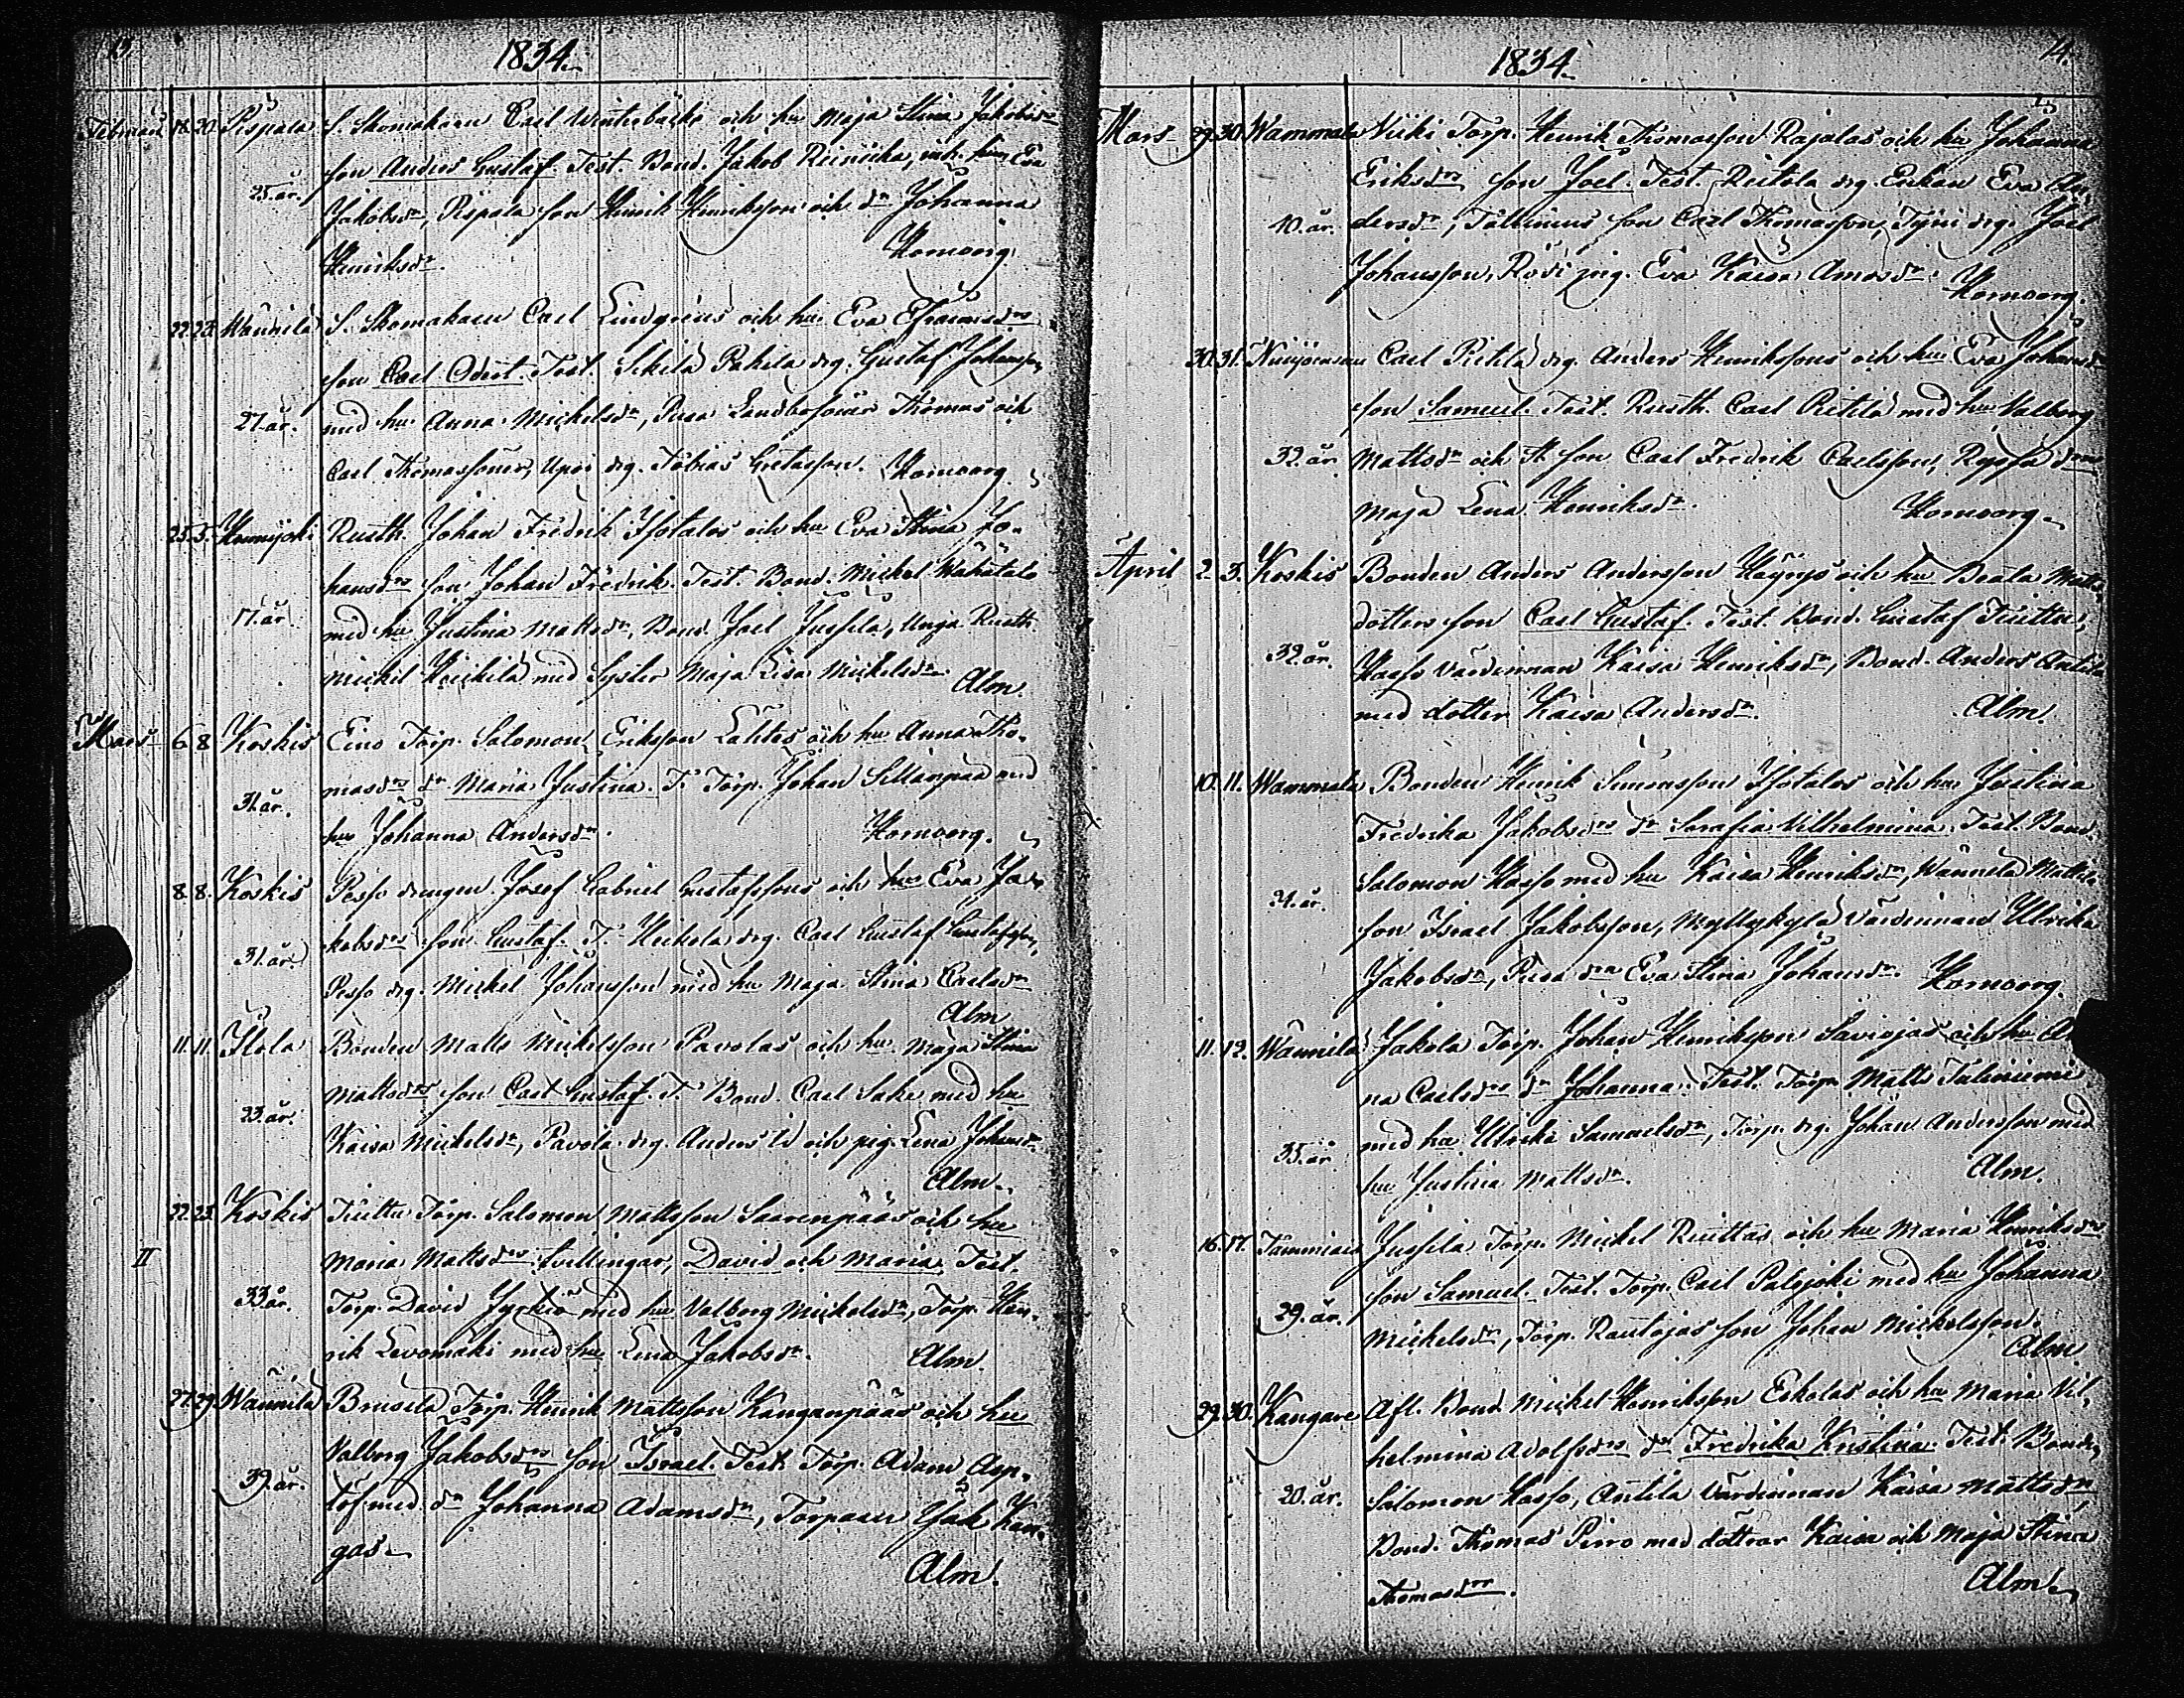 13.
1834.
Februari 18. 20. Pispala S. Skomakaren Carl Winterbäcks och hu Maja Stina Jakobsdrs
son Anders Gustaf. Test. Bond. Jakob Reinikka, enk. Eva
25. år. Jakobsdr, Pispala son Henrik Henriksson och dr Johanna
Henriksdr. Homoorg.
22. 23. Wännilä S. Skomakaren Carl Lindgréns och hu Eva Efraimsdrs
son Carl Odert. Test. Sikilä Pakila drg. Gustaf Johansson
27. år. med hu Anna Michelsdr, Pusa Landbosöner Thomas och
Carl Thomassöner, Uperi drg. Tobias Gretasson. Homoorg.
25. 5. Kummijoki Rusth. Johan Fredrik Isotalos och hu Eva Stina Jo-
hansdrs son Johan Fredrik. Test. Bond. Michel Wähätalo
17. år. med hu Justina Mattsdr, Bond. Joel Jussila, Unga Rusth.
Michel Heickilä med Syster Maja Lisa Michelsdr. Alm.
Mars 6. 8. Koskis Eino Torp. Salomon Eriksson Lahtis och hu Anna Tho-
masdrs dr Maria Justina. T. Torp. Johan Sillanpää med
31. år. hu Johanna Andersdr. Homoorg.
8. 8. Koskis Pesso drengen Josef Gabriel Gustafssons och hu Eva Ja-
kobsdrs son Gustaf. T. Heickola drg. Carl Gustaf Gustafsson,
31. år. Pesso drg. Michel Johansson med hu Maja Stina Carlsdr
Alm.
11. 11. Ilola Bonden Matts Michelsson Pavolas och hu Maja Stina
Mattsdrs son Carl Gustaf. T. Bond. Carl Sake med hu
23. år. Kaisa Michelsdr, Pavola drg. Anders Id och pig. Lena Johansdr.
Alm.
22. 23. Koskis Tuitu Torp. Salomon Mattsson Saarenpääs och hu
II Maria Mattsdrs tvillingar, David och Maria. Test.
33. år. Torp. David Jyrkiö med hu Valborg Michelsdr, Torp. Hen-
rik Levomäki med hu Lena Jakobsdr. Alm.
27. 29. Wännilä Brusila Torp. Henrik Mattsson Kanganpääs och hu
Valborg Jakobsdrs son Israel. Test. Torp. Adam Asp-
39. år. löf med dr Johanna Adamsdr, Torparen Isak Kan-
gas.
Alm.
14.
1834.
Mars 29. 30. Wammala Niki Torp. Henrik Thomasson Rajalas och hu Johanna
Eriksdrs son Joel. Test. Reitola drg. Enkan Eva An-
40. år. dersdr, Tallinius son Carl Thomasson, Tyni drg. Joel
Johansson, Rosi pig. Eva Kaisa Amosdr. Homoorg.
30. 31. Carl Pietilä drg. Anders Henrikssons och hu Eva Johansdrs
son Samuel. Test. Rusth. Carl Pietilä med hu Valborg
32. år. Mattsdr och St. son Carl Fredrik Carlsson,
Maja Lena Henriksdr. Homoorg.
April 2. 3. Koskis Bonden Anders Andersson Häynjs och hu Beata Matts-
dotters son Carl Gustaf. Test. Bond. Gustaf Tuittu,
32. år. Hasso värdinnan Kaisa Henriksdr, Bond. Anders Antila
med dotter Kaisa Andersdr. Alm.
10. 11. Wammala Bonden Henrik Simonsson Isotalos och hu Justina
Fredrika Jakobsdrs dr Serafia Vilhelmina. Test. Bond.
21. år. Salomon Hasso med hu Kaisa Henriksdr, Wännilä Mattila
son Israel Jakobsson, Myllykylä värdinnan Ulrika
Jakobsdr, Pusa drn Eva Stina Johansdr. Homoorg.
11. 12. Wännilä Jakola Torp. Johan Henriksson Saviojas och hu An
na Carlsdrs dr Johanna. Test. Torp. Matts Tuliniemi
35. år. med hu Ulrika Samuelsdr, Torp. drg. Johan Andersson med
hu Justina Mattsdr. Alm.
16. 17. Tammiais Jussila Torp. Michel Ruittas och hu Maria Henriksdrs
son Samuel. Test. Torp. Carl Palojoki med hu Johanna
29. år. Michelsdr, Torp. Rautojas son Johan Michelsson.
Alm.
29. 30. Kangare Afl. Bond. Michel Henriksson Eskolas och hu Maria Vil-
helmina Adolfsdrs dr Fredrika Kristina. Test. Bonden
20. år. Salomon Hasso, Antila värdinnan Kaisa Mattsdr,
Bond. Thomas Pirro med döttrar Kaisa och Maja Stina
Thomasdrr. Alm.